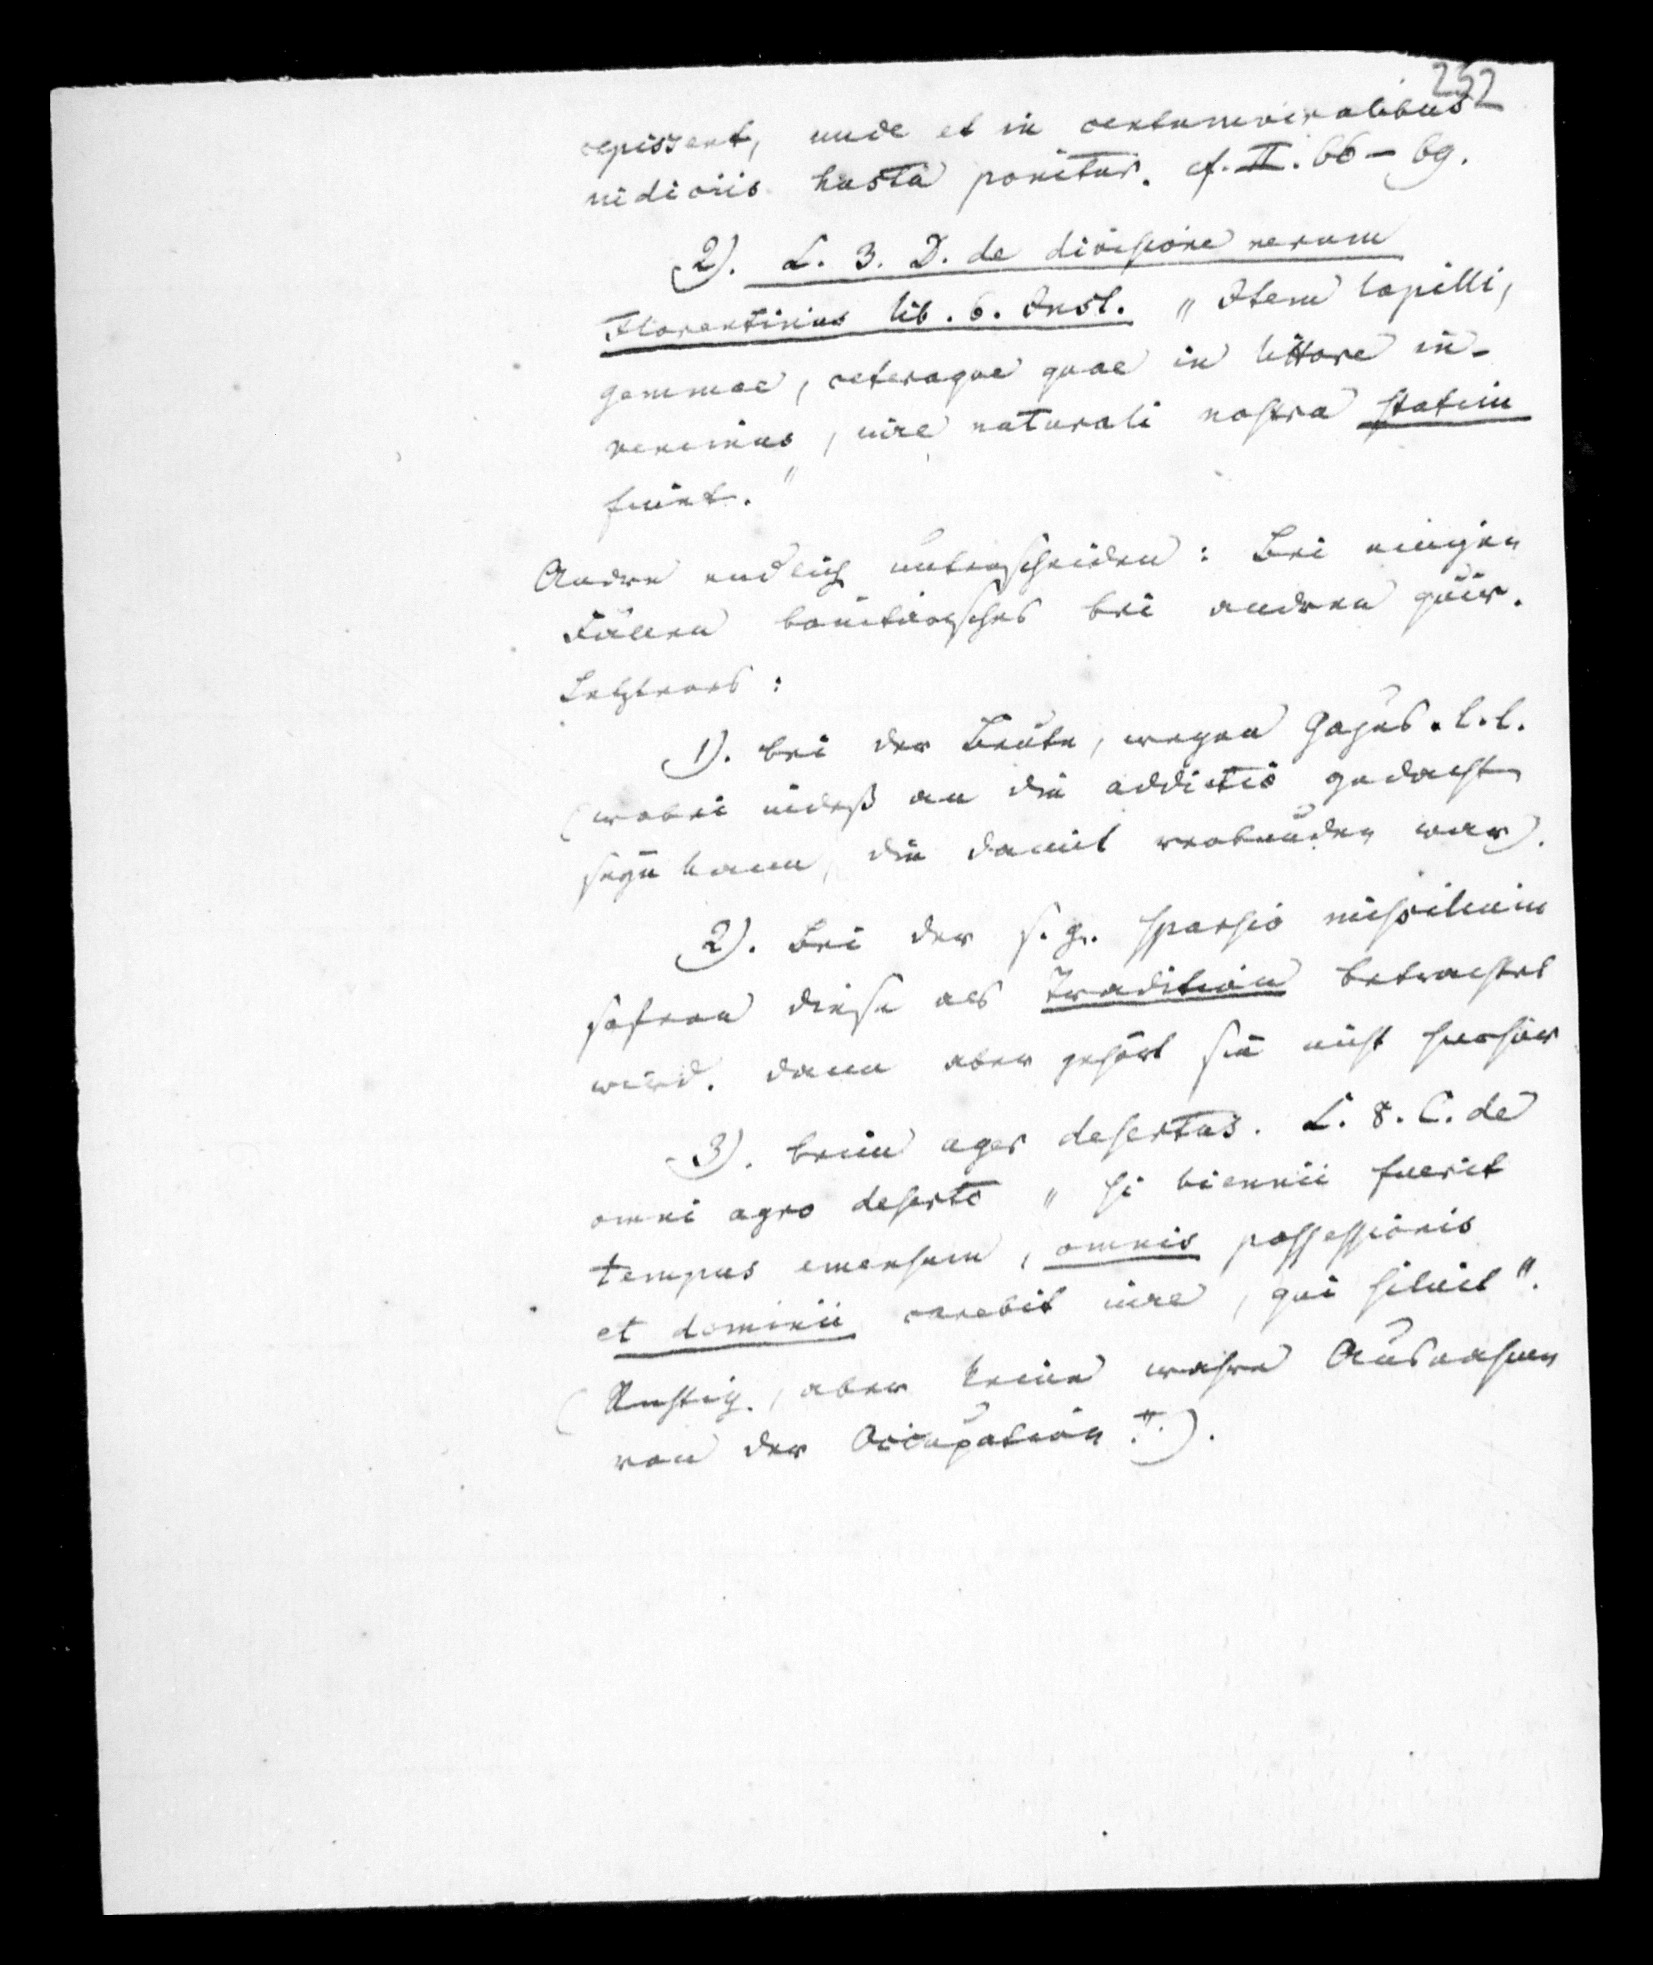 252
cepissent, unde et in centumviralibus
iudiciis hasta ponitur. cf. II. 66 – 69.
2). L. 3. D. de divisione rerum
Florentinus lib. 6. Inst. „Item lapilli,
gemmae, ceteraque quae in littore in-
venimus, iure naturali nostra statim
fiunt."
Andre endlich unterscheiden: Bei einigen
Fällen bonitarisches bei andren quir.
Letzteres:
1). bei der Beute, wegen Gajus. l. l.
(wobei indeß an die addictio gedacht
seyn kann, die damit verbunden war).
2). Bei der s. g. sparsio missilium
sofern diese als Tradition betrachtet
wird. dann aber gehört sie nicht hierher
3). beim ager desertus. L. 8. C. de
omni agro deserto „si biennii fuerit
tempus emensum, omnis possessionis
et dominii carebit iure, qui siluit".
(Richtig, aber keine wahre Ausnahme
von der Occupation!").